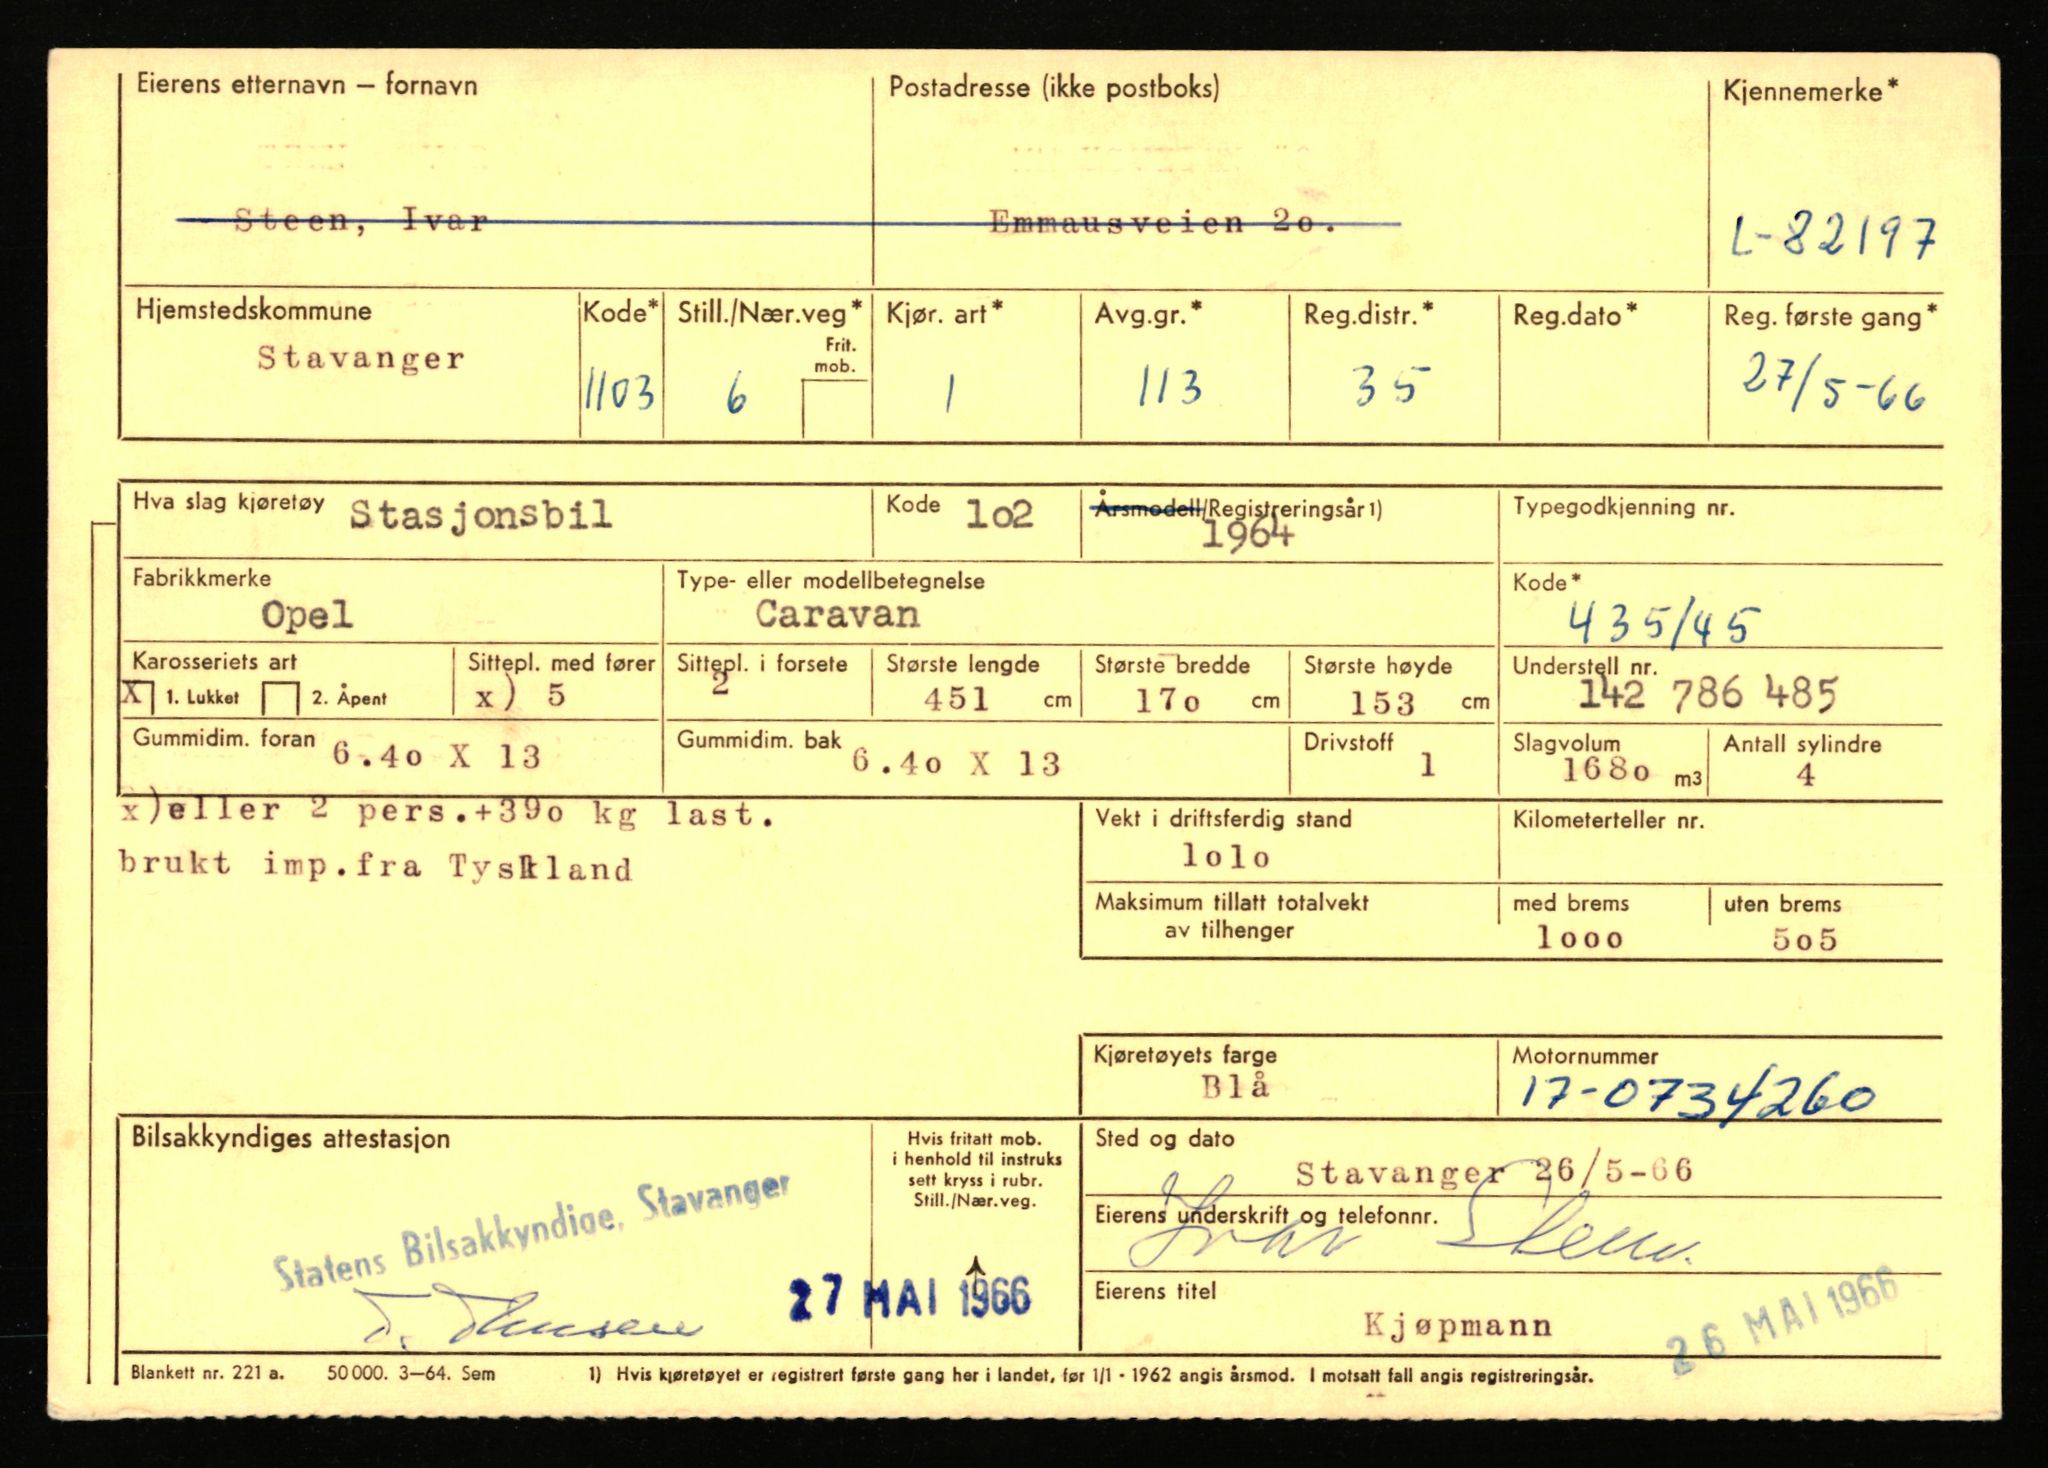 Eierens etternavn – fornavn
Postadresse (ikke postboks)
Kjennemerke*
Steen, Ivar
Emmausveien 2o.
L-82197
Hjemstedskommune
Kode*
Still./Nær.veg*
Frit.
mob.
Kjør. art*
Avg.gr.*
Reg.distr.*
Reg.dato*
Reg. første gang*
Stavanger
1103
6
1
113
35
27/5-66
Hva slag kjøretøy Stasjonsbil
Kode 1o2
Årsmodell/Registreringsår 1)
1964
Typegodkjenning nr.
Fabrikkmerke
Opel
Type- eller modellbetegnelse
Caravan
Kode*
435/45
Karosseriets art
X 1. Lukket 2. Åpent
Sittepl. med fører
x) 5
Sittepl. i forsete
2
Største lengde
451 cm
Største bredde
17o cm
Største høyde
153 cm
Understell nr.
142 786 485
Gummidim. foran 6.4o X 13
Gummidim. bak 6.4o X 13
Drivstoff
1
Slagvolum
168o m3
Antall sylindre
4
x)eller 2 pers.+39o kg last.
brukt imp.fra Tyskland
Vekt i driftsferdig stand
1o1o
Kilometerteller nr.
Maksimum tillatt totalvekt
av tilhenger
med brems
1ooo
uten brems
5o5
Kjøretøyets farge
Blå
Motornummer
17-0734260
Bilsakkyndiges attestasjon
Hvis fritatt mob.
i henhold til instruks
sett kryss i rubr.
Still./Nær.veg.
Sted og dato
Stavanger 26/5-66
Statens Bilsakkyndige, Stavanger
27 MAI 1966
Eierens underskrift og telefonnr.
Ivar Steen.
Eierens titel
Kjøpmann
26 MAI 1966
Blankett nr. 221 a. 50 000. 3–64. Sem
1) Hvis kjøretøyet er registrert første gang her i landet, før 1/1 - 1962 angis årsmod. I motsatt fall angis registreringsår.